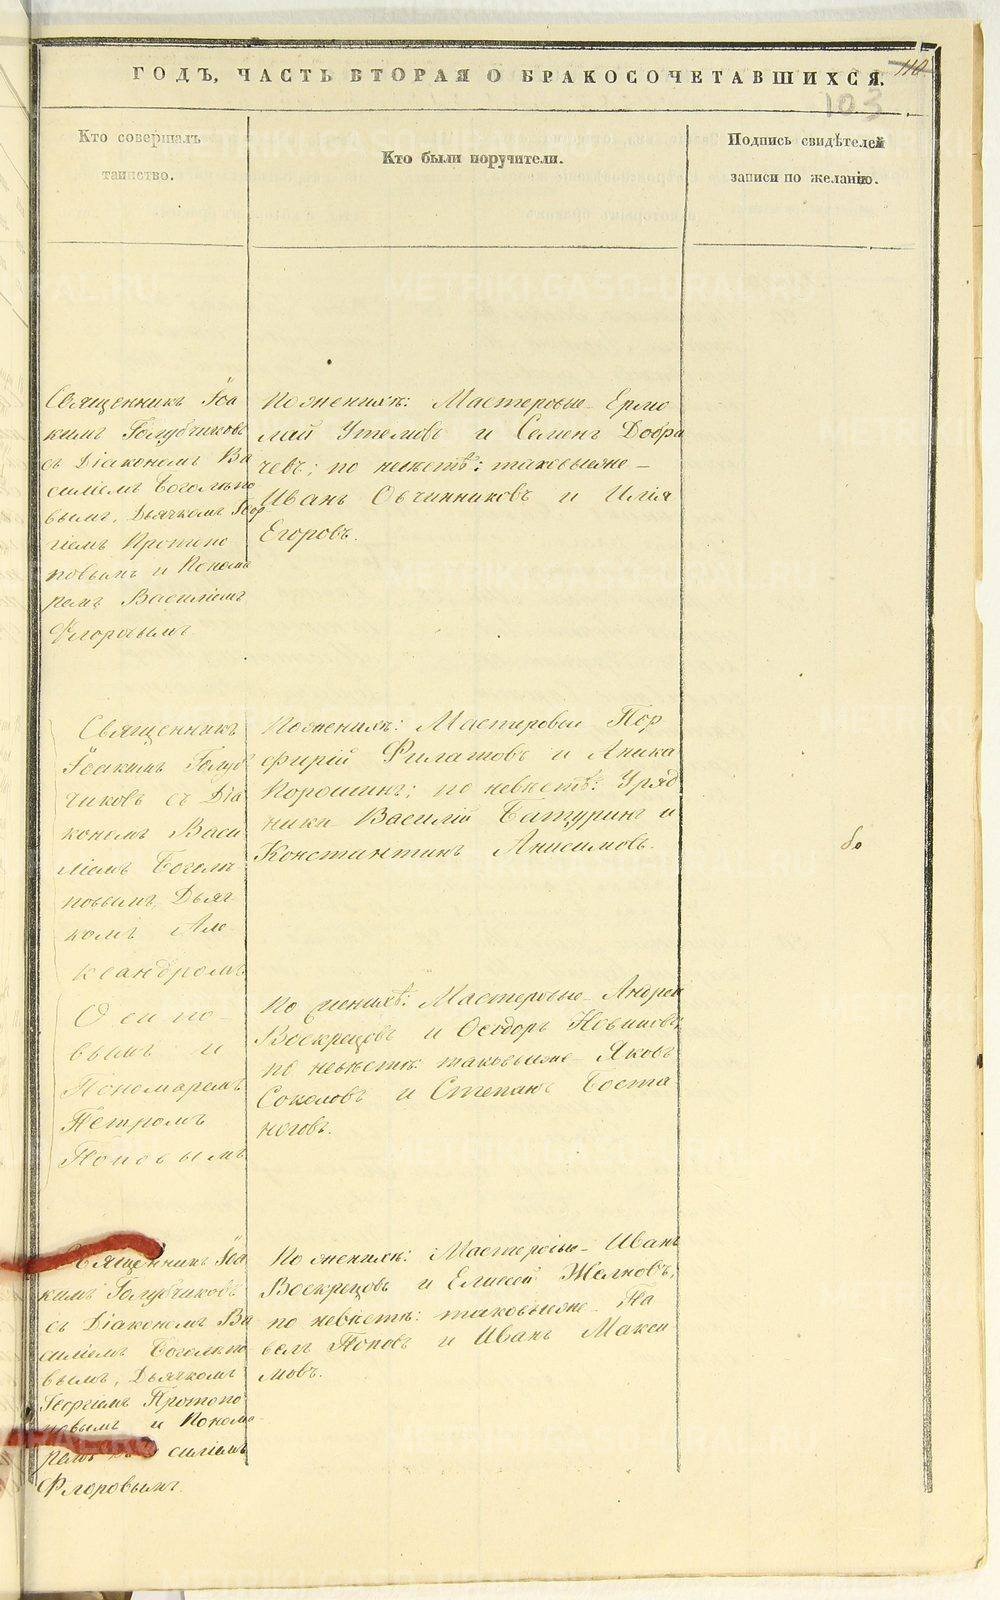 ГОДЪ, ЧАСТЬ ВТОРАЯ О БРАКОСОЧЕТАВШИХСЯ.
110
103
Кто совершалъ
таинство.
Кто были поручители.
Подпись свидѣтелей
записи по желанію.
Священникъ Іоа
кимъ Голубчиковъ
съ Діакономъ Ва
силіемъ Боголѣпо
вымъ, Дьячкомъ Геор
гіемъ Протопо
повымъ и Понома
ремъ Василіемъ
Флоровымъ
По женихѣ: Мастеровые Ермо
лай Утемовъ и Семенъ Добра
чевъ; по невѣстѣ: таковыеже
Иванъ Овчинниковъ и Илія
Егоровъ.
Священникъ
Іоакимъ Голуб
чиковъ съ Діа
кономъ Васи
ліемъ Боголѣ
повымъ, Дьяч
комъ Але
ксандромъ
Осипо
вымъ и
Пономаремъ
Петромъ
Поповымъ
По женихѣ: Мастеровые Пор
фирій Филатовъ и Аника
Порошинъ; по невѣстѣ: Уряд
ники Василій Батуринъ и
Константинъ Анисимовъ.
По женихѣ: Мастеровые Андрей
Воскрецовъ и Ѳеодоръ Новиковъ,
по невѣстѣ: таковыеже Яковъ
Соколовъ и Степанъ Боста
ноговъ.
Священникъ Іоа
кимъ Голубчиковъ
съ Діакономъ Ва
силіемъ Боголѣпо
вымъ, Дьячкомъ
Георгіемъ Протопо
повымъ и Понома
ремъ Василіемъ
Флоровымъ.
По женихѣ: Мастеровые Иванъ
Воскрецовъ и Елисей Желновъ,
по невѣстѣ: таковыеже Па
велъ Поповъ и Иванъ Макси
мовъ.
METRIKI.GASO-URAL.RU